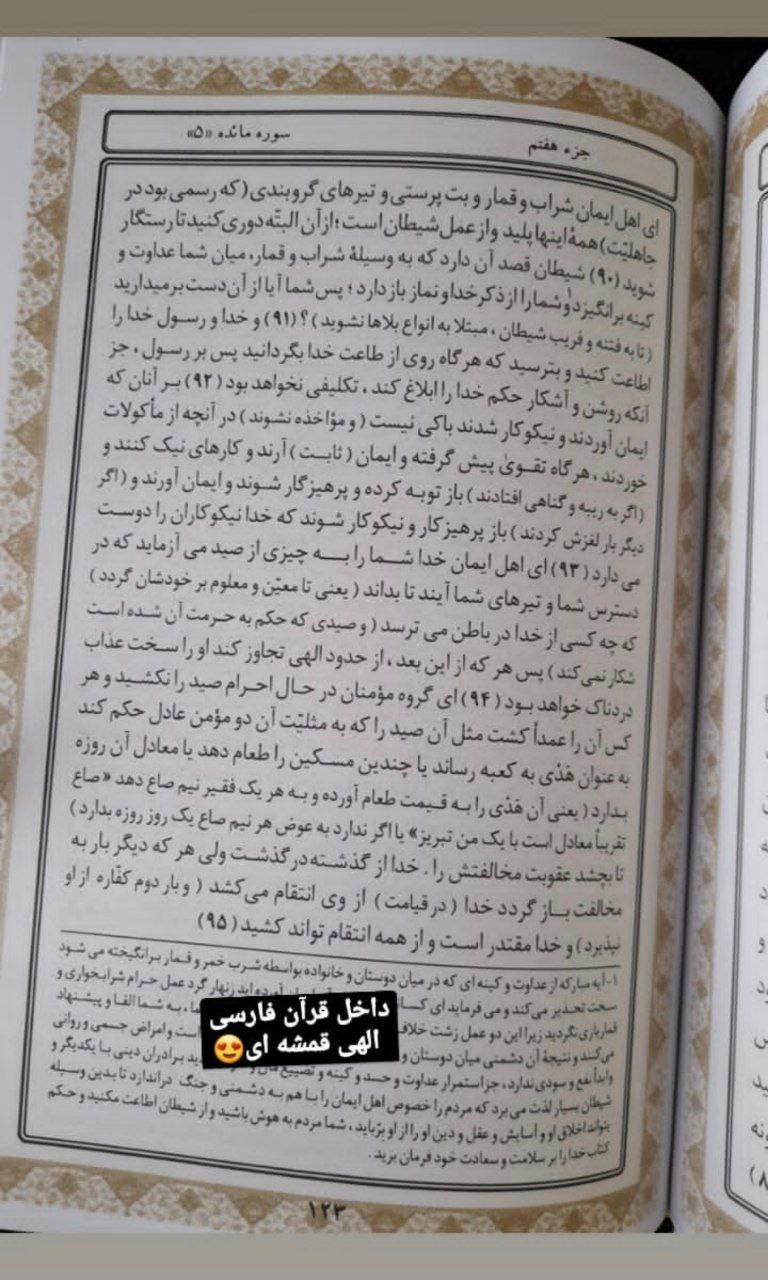 جزء هفتم
سوره مائده «۵»
ای اهل ایمان شراب و قمار و بت پرستی و تیرهای گروبندی (که رسمی بود در
جاهلیّت) همهٔ اینها پلید و از عمل شیطان است؛ از آن البتّه دوری کنید تا رستگار
شوید (۹۰) شیطان قصد آن دارد که به وسیلهٔ شراب و قمار، میان شما عداوت و
کینه برانگیزد و شما را از ذکر خدا و نماز باز دارد؛ پس شما آیا از آن دست برمیدارید
(تا به فتنه و فریب شیطان، مبتلا به انواع بلاها نشوید)؟ (۹۱) و خدا و رسول خدا را
اطاعت کنید و بترسید که هرگاه روی از طاعت خدا بگردانید پس بر رسول، جز
آنکه روشن و آشکار حکم خدا را ابلاغ کند، تکلیفی نخواهد بود (۹۲) بر آنان که
ایمان آوردند و نیکوکار شدند باکی نیست (و مؤاخذه نشوند) در آنچه از مأکولات
خوردند، هرگاه تقویٰ پیش گرفته و ایمان (ثابت) آرند و کارهای نیک کنند و
(اگر به ریبه و گناهی افتادند) باز توبه کرده و پرهیزگار شوند و ایمان آورند و (اگر
دیگر بار لغزش کردند) باز پرهیزکار و نیکوکار شوند که خدا نیکوکاران را دوست
می دارد (۹۳) ای اهل ایمان خدا شما را به چیزی از صید می آزماید که در
دسترس شما و تیرهای شما آیند تا بداند (یعنی تا معیّن و معلوم بر خودشان گردد)
که چه کسی از خدا در باطن می ترسد (و صیدی که حکم به حرمت آن شده است
شکار نمی کند) پس هر که از این بعد، از حدود الهی تجاوز کند او را سخت عذاب
دردناک خواهد بود (۹۴) ای گروه مؤمنان در حال احرام صید را نکشید و هر
کس آن را عمداً کشت مثل آن صید را که به مثلیّت آن دو مؤمن عادل حکم کند
به عنوان هَدْی به کعبه رساند یا چندین مسکین را طعام دهد یا معادل آن روزه
بدارد (یعنی آن هَدْی را به قیمت طعام آورده و به هر یک فقیر نیم صاع دهد «صاع
تقریباً معادل است با یک من تبریز» یا اگر ندارد به عوض هر نیم صاع یک روز روزه بدارد)
تا بچشد عقوبت مخالفتش را. خدا از گذشته درگذشت ولی هر که دیگر بار به
مخالفت باز گردد خدا (در قیامت) از وی انتقام می کشد (و بار دوم کفّاره از او
نپذیرد) و خدا مقتدر است و از همه انتقام تواند کشید (۹۵)
۱- آیه مبارکه از عداوت و کینه ای که در میان دوستان و خانواده بواسطه شرب خمر و قمار برانگیخته می شود
سخت تحذیر می کند و می فرماید ای آورده اید زنهار گرد عمل حرام شرابخواری و
قماربازی نگردید زیرا این دو عمل زشت به شما القا و پیشنهاد
می کنند و نتیجهٔ آن دشمنی میان دوستان و است و امراض جسمی و روانی
وابداً نفع و سودی ندارد، جز استمرار عداوت و حسد و کینه و تضییع برادران دینی با یکدیگر و
شیطان بسیار لذت می برد که مردم را خصوص اهل ایمان را با هم به دشمنی و جنگ دراندازد تا بدین وسیله
بتواند اخلاق او و آسایش و عقل و دین او را از او برباید، شما مردم به هوش باشید و از شیطان اطاعت مکنید و حکم
کتاب خدا را بر سلامت و سعادت خود فرمان برید.
داخل قرآن فارسی
الهی قمشه ای😍
۱۲۳